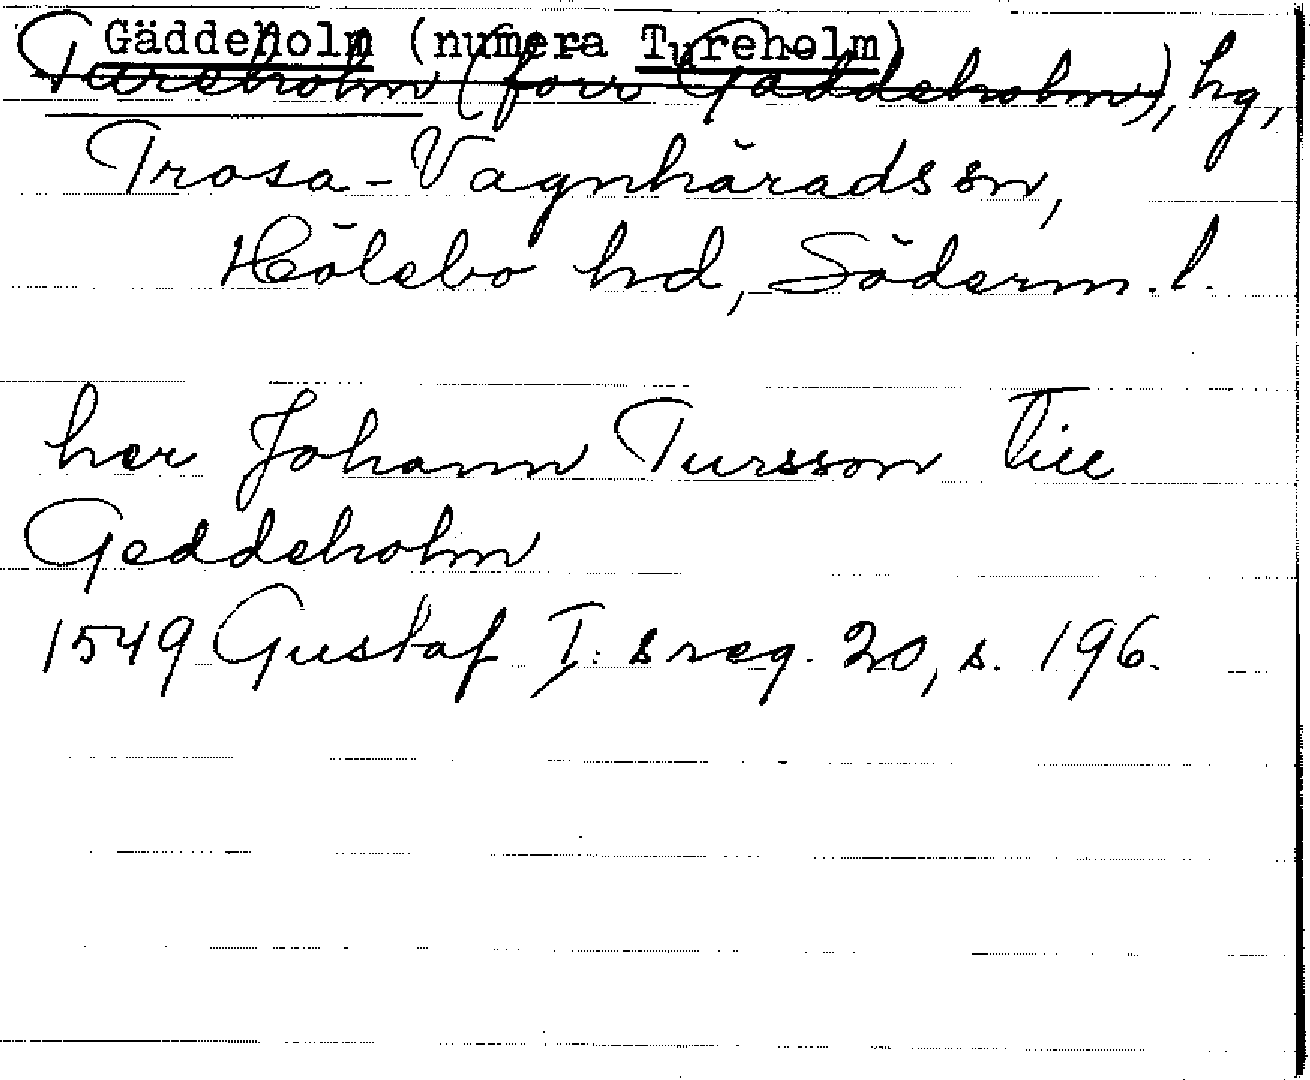 Gäddeholm (numera Tureholm)
Tureholm (förr Gäddeholm), hg,
Trosa-Vagnhärads sn,
Hölebo hd, Söderm. l.
her Johann Tursson till
Geddeholm
1549 Gustaf I:s reg. 20, s. 196.